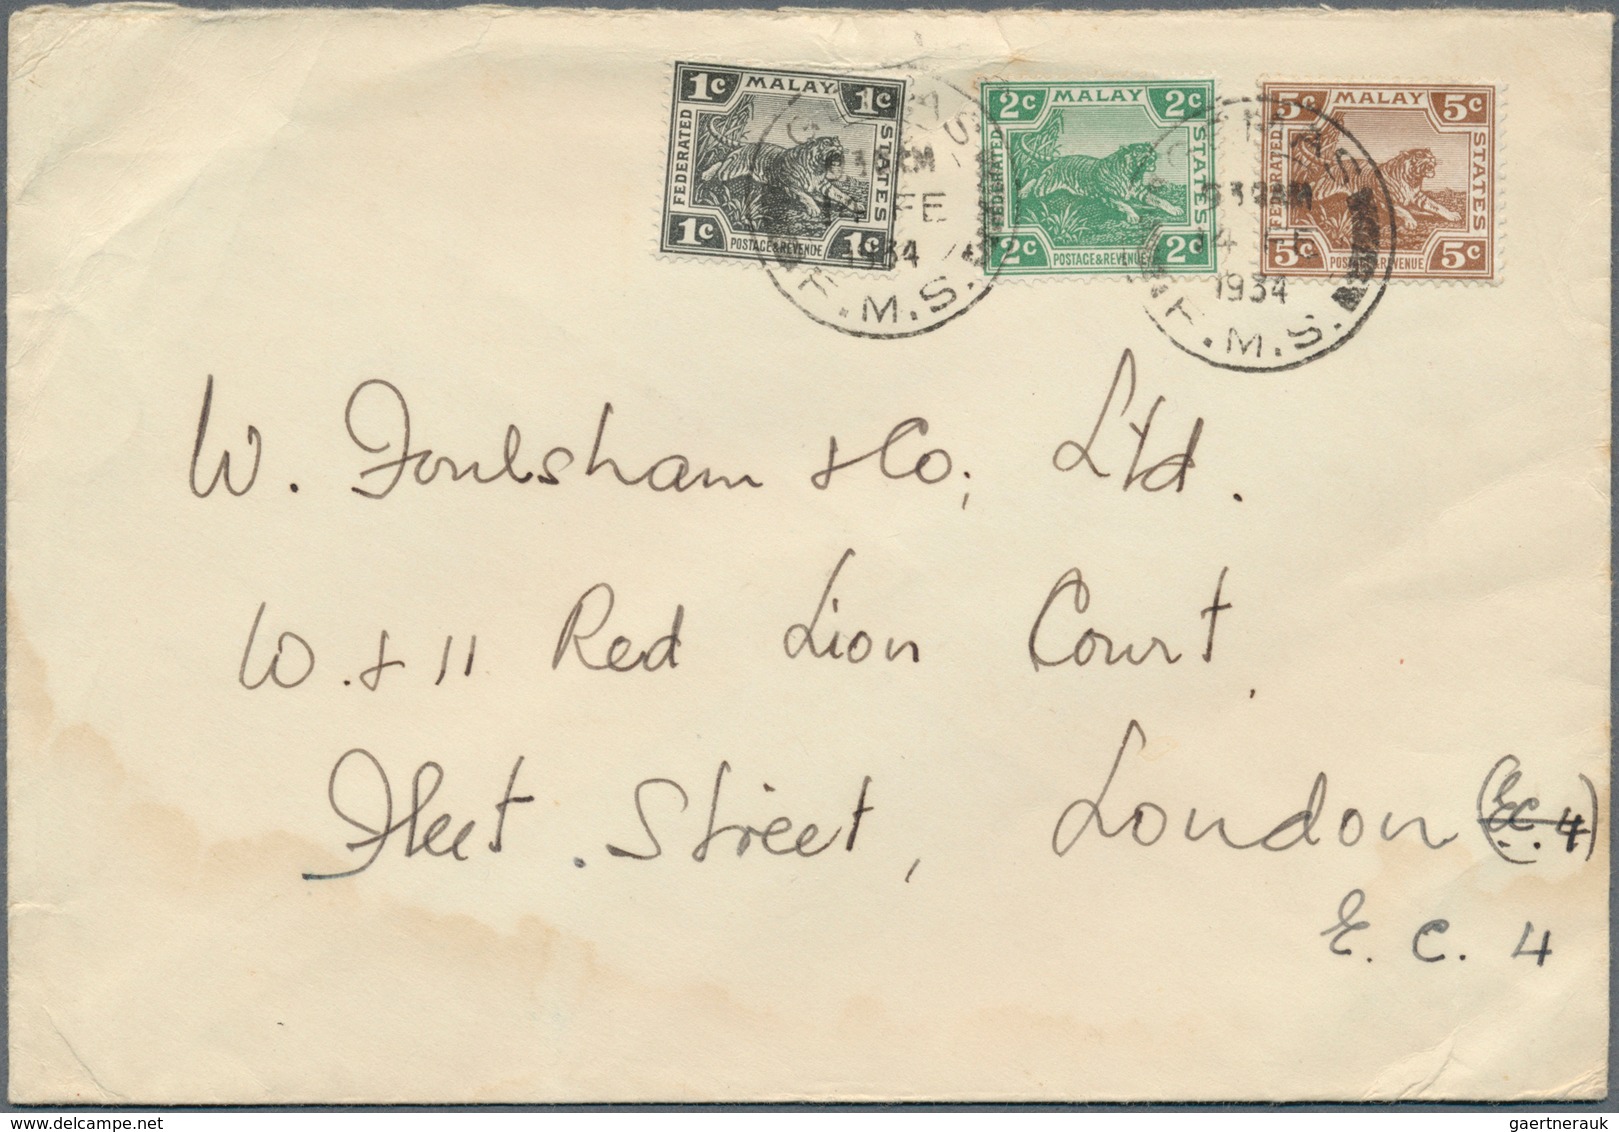 1c MALAY 1c
FEDERATED
STATES
1c POSTAGE & REVENUE 1c
2c MALAY 2c
FEDERATED
2c POSTAGE & REVENUE 2c
5c MALAY 5c
FEDERATED
STATES
5c POSTAGE & REVENUE 5c
14 FE
1934
F.M.S.
14 FE
1934
F.M.S.
W. Foulsham & Co; Ltd.
W. & 11 Red Lion Court,
Fleet. Street, London (E.C. 4)
E. C. 4
gaertnerauk @ delcampe.net